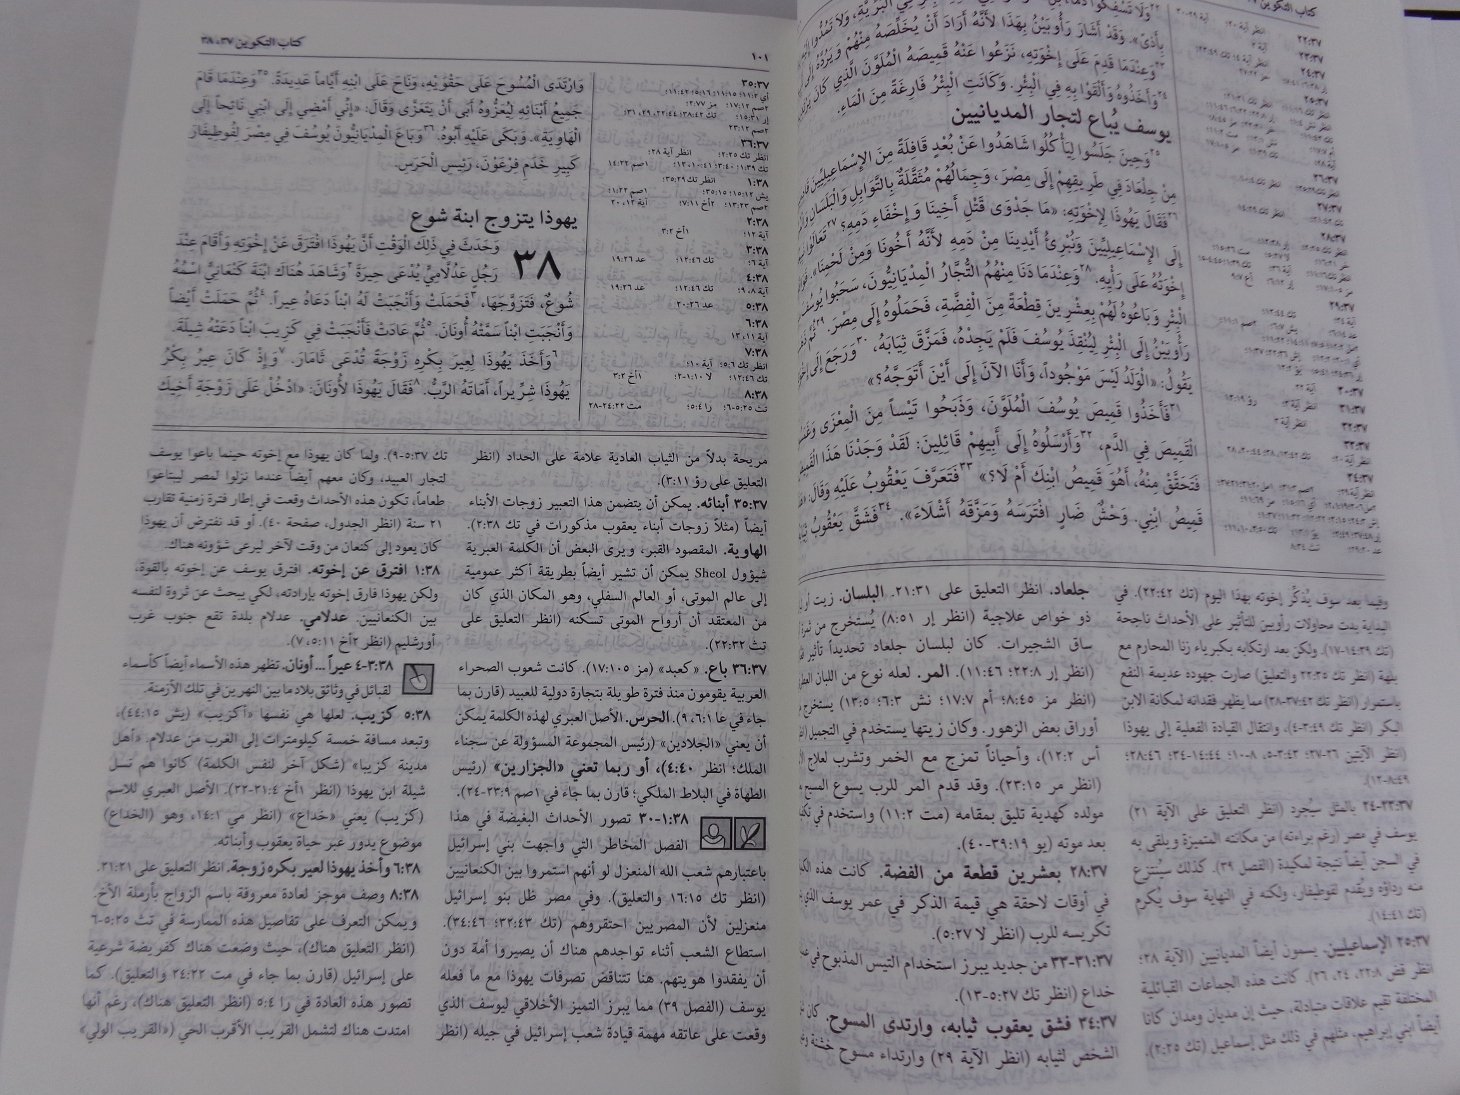 كتاب التكوين ٣٧
٢٢وَلَا تَسْفِكُوا دَمًا،
بِأَذىً». وَقَدْ أَشَارَ رَأُوبَيْنُ بِهَذَا لأَنَّهُ أَرَادَ أَنْ يُخَلِّصَهُ مِنْهُمْ وَيَرُدَّهُ
٢٣وَعِنْدَمَا قَدِمَ عَلَى إِخْوَتِهِ، نَزَعُوا عَنْهُ قَمِيصَهُ الْمُلَوَّنَ الَّذِي كَانَ
٢٤وَأَخَذُوهُ وَأَلْقَوْا بِهِ فِي الْبِئْرِ. وَكَانَتِ الْبِئْرُ فَارِغَةً مِنَ الْمَاءِ.
يوسف يُباع لتجار المديانيين
٢٥وَحِينَ جَلَسُوا لِيَأْكُلُوا شَاهَدُوا عَنْ بُعْدٍ قَافِلَةً مِنَ الإِسْمَاعِيلِيِّينَ
مِنْ جِلْعَادَ فِي طَرِيقِهِمْ إِلَى مِصْرَ، وَجِمَالُهُمْ مُثَقَّلَةٌ بِالتَّوَابِلِ وَالْبَلَسَانِ
٢٦فَقَالَ يَهُوذَا لإِخْوَتِهِ: «مَا جَدْوَى قَتْلِ أَخِينَا وَإِخْفَاءِ دَمِهِ؟ ٢٧تَعَالَوْا
إِلَى الإِسْمَاعِيلِيِّينَ وَنُبْرِئُ أَيْدِينَا مِنْ دَمِهِ لأَنَّهُ أَخُونَا وَمِنْ لَحْمِنَا».
إِخْوَتُهُ عَلَى رَأْيِهِ. ٢٨وَعِنْدَمَا دَنَا مِنْهُمُ التُّجَّارُ الْمِدْيَانِيُّونَ، سَحَبُوا يُوسُفَ
الْبِئْرِ وَبَاعُوهُ لَهُمْ بِعِشْرِينَ قِطْعَةً مِنَ الْفِضَّةِ، فَحَمَلُوهُ إِلَى مِصْرَ. ٢٩
رَأُوبَيْنُ إِلَى الْبِئْرِ لِيُنْقِذَ يُوسُفَ فَلَمْ يَجِدْهُ، فَمَزَّقَ ثِيَابَهُ، ٣٠وَرَجَعَ إِلَى
يَقُولُ: «الْوَلَدُ لَيْسَ مَوْجُوداً، وَأَنَا الآنَ إِلَى أَيْنَ أَتَوَجَّهُ؟»
٣١فَأَخَذُوا قَمِيصَ يُوسُفَ الْمُلَوَّنَ، وَذَبَحُوا تَيْساً مِنَ الْمِعْزَى
الْقَمِيصَ فِي الدَّمِ، ٣٢وَأَرْسَلُوهُ إِلَى أَبِيهِمْ قَائِلِينَ: لَقَدْ وَجَدْنَا هَذَا
فَتَحَقَّقْ مِنْهُ، أَهُوَ قَمِيصُ ابْنِكَ أَمْ لَا؟» ٣٣فَتَعَرَّفَ يَعْقُوبُ عَلَيْهِ وَقَالَ:
قَمِيصُ ابْنِي. وَحْشٌ ضَارٍ افْتَرَسَهُ وَمَزَّقَهُ أَشْلَاءَ». ٣٤فَشَقَّ يَعْقُوبُ
وفيما بعد سوف يُذكِّر إخوته بهذا اليوم (تك ٢٢:٤٢). في
البداية بدت محاولات رأوبين للتأثير على الأحداث ناجحة
(تك ١٤:٣٩-١٧). ولكن بعد ارتكابه بكبرياء زنا المحارم مع
بلهة (انظر تك ٢٢:٣٥ والتعليق) صارت جهوده عديمة النفع
باستمرار (انظر تك ٣٧:٤٢-٣٨) مما يظهر فقدانه لمكانة الابن
البكر (انظر تك ٣:٤٩-٤)، وانتقال القيادة الفعلية إلى يهوذا
٢٣:٣٧-٢٤ بالمثل سيُجرد (انظر التعليق على الآية ٢١)
يوسف في مصر (رغم براءته) من مكانته المتميزة ويلقى به
في السجن أيضاً نتيجة لمكيدة (الفصل ٣٩). كذلك سيُنتزع
منه رداؤه ويُقدم لفوطيفار، ولكنه في النهاية سوف يُكرم
(تك ١٤:٤١).
٢٥:٣٧ الإسماعيليين. يسمون أيضاً المديانيين (الآية ٢٨؛
انظر قض ٢٢:٨، ٢٤، ٢٦). كانت هذه الجماعات القبائلية
المختلفة تقيم علاقات متبادلة، حيث إن مديان ومدان كانا
أيضاً ابني إبراهيم، مثلهم في ذلك مثل إسماعيل (تك ٢:٢٥).
جلعاد. انظر التعليق على ٢١:٣١. البلسان. زيت أو
ذو خواص علاجية (انظر إر ٨:٥١) يُستخرج من
ساق الشجيرات. كان لبلسان جلعاد تحديداً تأثير
(انظر إر ٢٢:٨؛ ١١:٤٦). المر. لعله نوع من اللبان
(انظر مز ٨:٤٥؛ أم ١٧:٧؛ نش ٦:٣؛ ١٣:٥) يستخرج
أوراق بعض الزهور. وكان زيتها يستخدم في التجميل (انظر
أس ١٢:٢)، وأحياناً تمزج مع الخمر وتشرب لعلاج
(انظر مر ٢٣:١٥). وقد قدم المر للرب يسوع المسيح
مولده كهدية تليق بمقامه (مت ١١:٢) واستخدم في
بعد موته (يو ٣٩:١٩-٤٠).
٢٨:٣٧ بعشرين قطعة من الفضة. كانت هذه
في أوقات لاحقة هي قيمة الذكر في عمر يوسف الذي
تكريسه للرب (انظر لا ٥:٢٧).
٣١:٣٧-٣٣ من جديد يبرز استخدام التيس المذبوح في
خداع (انظر تك ٥:٢٧-١٣).
٣٤:٣٧ فشق يعقوب ثيابه، وارتدى المسوح. كان
الشخص لثيابه (انظر الآية ٢٩) وارتداء مسوح خشنة
كتاب التكوين ٣٧، ٣٨
١٠١
٣٥:٣٧
٣٦:٣٧
انظر تك ٢:٢٥؛ انظر آية ٢٨؛
١:٣٨
انظر تك ٢٩:٣٥؛
٢:٣٨
آية ١٢؛ ١أخ ٣:٢
٣:٣٨
آية ٦؛ تك ١٢:٤٦؛ عد ١٩:٢٦
٤:٣٨
آية ٨، ٩؛ تك ١٢:٤٦؛ عد ١٩:٢٦
٥:٣٨
عد ٢٠:٢٦
٦:٣٨
آية ١١، ١٣
٧:٣٨
انظر تك ٥:٦؛ آية ١٠؛
تك ١٢:٤٦؛ لا ١:١٠-٢؛ ١أخ ٣:٢
٨:٣٨
تث ٥:٢٥-٦؛ را ٥:٤؛ مت ٢٤:٢٢-٢٨
وَارْتَدَى الْمُسُوحَ عَلَى حَقْوَيْهِ، وَنَاحَ عَلَى ابْنِهِ أَيَّاماً عَدِيدَةً. ٣٥وَعِنْدَمَا قَامَ
جَمِيعُ أَبْنَائِهِ لِيُعَزُّوهُ أَبَى أَنْ يَتَعَزَّى وَقَالَ: «إِنِّي أَمْضِي إِلَى ابْنِي نَائِحاً إِلَى
الْهَاوِيَةِ». وَبَكَى عَلَيْهِ أَبُوهُ. ٣٦وَبَاعَ الْمِدْيَانِيُّونَ يُوسُفَ فِي مِصْرَ لِفُوطِيفَارَ
كَبِيرِ خَدَمِ فِرْعَوْنَ، رَئِيسِ الْحَرَسِ.
يهوذا يتزوج ابنة شوع
٣٨ وَحَدَثَ فِي ذَلِكَ الْوَقْتِ أَنَّ يَهُوذَا افْتَرَقَ عَنْ إِخْوَتِهِ وَأَقَامَ عِنْدَ
رَجُلٍ عَدُلَّامِيٍّ يُدْعَى حِيرَةَ ٢وَشَاهَدَ هُنَاكَ ابْنَةَ كَنْعَانِيٍّ اسْمُهُ
شُوعُ، فَتَزَوَّجَهَا، ٣فَحَمَلَتْ وَأَنْجَبَتْ لَهُ ابْناً دَعَاهُ عِيراً. ٤ثُمَّ حَمَلَتْ أَيْضاً
وَأَنْجَبَتِ ابْناً سَمَّتْهُ أُونَانَ. ٥ثُمَّ عَادَتْ فَأَنْجَبَتْ فِي كَزِيبَ ابْناً دَعَتْهُ شِيلَةَ.
٦وَأَخَذَ يَهُوذَا لِعِيرَ بِكْرِهِ زَوْجَةً تُدْعَى ثَامَارَ. ٧وَإِذْ كَانَ عِيرُ بِكْرُ
يَهُوذَا شِرِّيراً، أَمَاتَهُ الرَّبُّ. ٨فَقَالَ يَهُوذَا لأُونَانَ: «ادْخُلْ عَلَى زَوْجَةِ أَخِيكَ
مريحة بدلاً من الثياب العادية علامة على الحداد (انظر
التعليق على رؤ ٣:١١).
٣٥:٣٧ أبنائه. يمكن أن يتضمن هذا التعبير زوجات الأبناء
أيضاً (مثلاً زوجات أبناء يعقوب مذكورات في تك ٢:٣٨).
الهاوية. المقصود القبر، ويرى البعض أن الكلمة العبرية
شيؤول Sheol يمكن أن تشير أيضاً بطريقة أكثر عمومية
إلى عالم الموتى، أو العالم السفلي، وهو المكان الذي كان
من المعتقد أن أرواح الموتى تسكنه (انظر التعليق على
تث ٢٢:٣٢).
٣٦:٣٧ باع. «كعبد» (مز ١٧:١٠٥). كانت شعوب الصحراء
العربية يقومون منذ فترة طويلة بتجارة دولية للعبيد (قارن بما
جاء في عا ٦:١، ٩). الحرس. الأصل العبري لهذه الكلمة يمكن
أن يعني «الجلادين» (رئيس المجموعة المسؤولة عن سجناء
الملك؛ انظر ٤:٤٠)، أو ربما تعني «الجزارين» (رئيس
الطهاة في البلاط الملكي؛ قارن بما جاء في ١صم ٢٣:٩-٢٤).
١:٣٨-٣٠ تصور الأحداث البغيضة في هذا
الفصل المخاطر التي واجهت بني إسرائيل
باعتبارهم شعب الله المنعزل لو أنهم استمروا بين الكنعانيين
(انظر تك ١٦:١٥ والتعليق). وفي مصر ظل بنو إسرائيل
منعزلين لأن المصريين احتقروهم (تك ٣٢:٤٣؛ ٣٤:٤٦).
استطاع الشعب أثناء تواجدهم هناك أن يصيروا أمة دون
أن يفقدوا هويتهم. هنا تتناقض تصرفات يهوذا مع ما فعله
يوسف (الفصل ٣٩) مما يبرز التميز الأخلاقي ليوسف الذي
وقعت على عاتقه مهمة قيادة شعب إسرائيل في جيله (انظر
تك ٥:٣٧-٩). ولما كان يهوذا مع إخوته حينما باعوا يوسف
لتجار العبيد، وكان معهم أيضاً عندما نزلوا لمصر ليبتاعوا
طعاماً، تكون هذه الأحداث وقعت في إطار فترة زمنية تقارب
٢١ سنة (انظر الجدول، صفحة ٤٠). أو قد نفترض أن يهوذا
كان يعود إلى كنعان من وقت لآخر ليرعى شؤونه هناك.
١:٣٨ افترق عن إخوته. افترق يوسف عن إخوته بالقوة،
ولكن يهوذا فارق إخوته بإرادته، لكي يبحث عن ثروة لنفسه
بين الكنعانيين. عدلامي. عدلام بلدة تقع جنوب غرب
أورشليم (انظر ٢أخ ٥:١١، ٧).
٣:٣٨-٤ عيراً ... أونان. تظهر هذه الأسماء أيضاً كأسماء
لقبائل في وثائق بلاد ما بين النهرين في تلك الأزمنة.
٥:٣٨ كزيب. لعلها هي نفسها «أكزيب» (يش ٤٤:١٥)،
وتبعد مسافة خمسة كيلومترات إلى الغرب من عدلام. «أهل
مدينة كزيبا» (شكل آخر لنفس الكلمة) كانوا هم نسل
شيلة ابن يهوذا (انظر ١أخ ٢١:٤-٢٢). الأصل العبري للاسم
(كزيب) يعني «خداع» (انظر مي ١٤:١)، وهو (الخداع)
موضوع يدور عبر حياة يعقوب وأبنائه.
٦:٣٨ وأخذ يهوذا لعير بكره زوجة. انظر التعليق على ٢١:٣١.
٨:٣٨ وصف موجز لعادة معروفة باسم الزواج بأرملة الأخ.
ويمكن التعرف على تفاصيل هذه الممارسة في تث ٥:٢٥-٦
(انظر التعليق هناك)، حيث وضعت هناك كفريضة شرعية
على إسرائيل (قارن بما جاء في مت ٢٤:٢٢ والتعليق). كما
تصور هذه العادة في را ٥:٤ (انظر التعليق هناك)، رغم أنها
امتدت هناك لتشمل القريب الأقرب الحي («القريب الولي»